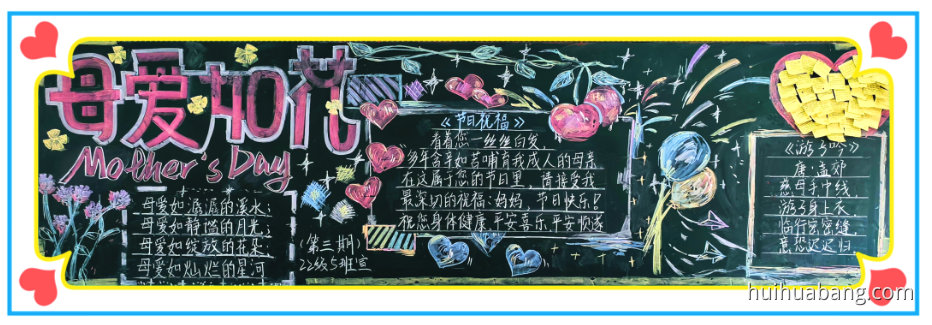 母爱如花
Mother's Day
母爱如潺潺的溪水；
母爱如静谧的月光；
母爱如绽放的花朵；
母爱如灿烂的星河
（第三期）
22级5班宣
《节日祝福》
看着您一丝丝白发，
多年含辛如苦哺育我成人的母亲
在这属于您的节日里，请接受我
最深切的祝福：妈妈，节日快乐！
祝您身体健康 平安喜乐 平安顺遂
《游子吟》
唐·孟郊
慈母手中线，
游子身上衣，
临行密密缝，
意恐迟迟归
huihuabang.com